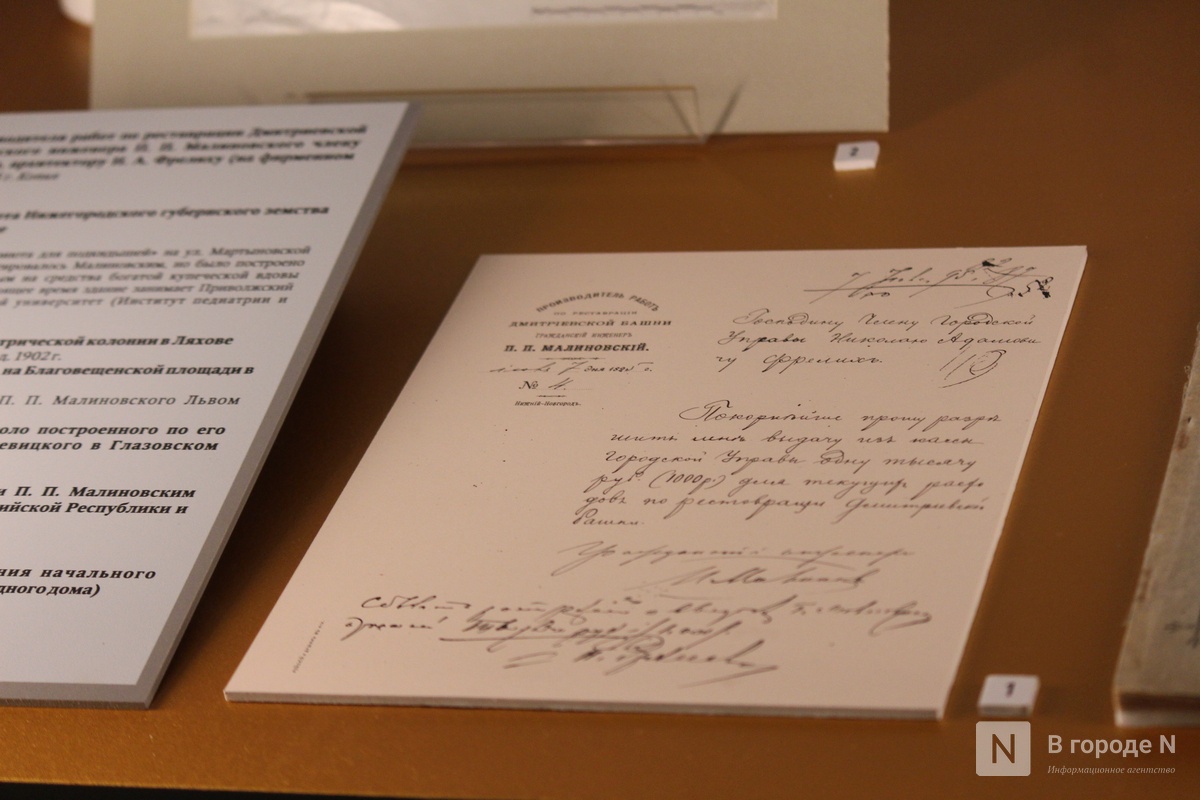 водителя работ по реставрации Дмитриевской
ского инженера П. П. Малиновского члену
архитектору Н. А. Фрелиху (на фирменном
г. Копия
та Нижегородского губернского земства
е
июта для подкидышей» на ул. Мартыновской
тировалось Малиновским, но было построено
ым на средства богатой купеческой вдовы
ящее время здание занимает Приволжский
й университет (Институт педиатрии и
трической колонии в Ляхове
д. 1902 г.
на Благовещенской площади в
П. П. Малиновского Львом
оло построенного по его
евицкого в Глазовском
и П. П. Малиновским
ийской Республики и
ния начального
дного дома)
2
ПРОИЗВОДИТЕЛЬ РАБОТЪ
ПО РЕСТАВРАЦІИ
ДМИТРІЕВСКОЙ БАШНИ
ГРАЖДАНСКІЙ ИНЖЕНЕРЪ
П. П. МАЛИНОВСКІЙ.
7 дня 189 г.
№ 4.
Нижній-Новгородъ.
Господину Члену Городской
Управы Николаю Адамови
чу Фрелихъ.
Покорнѣйше прошу разрѣ
шить мнѣ выдачу изъ кассы
Городской Управы одну тысячу
руб. (1000 р.) для текущихъ расхо
довъ по реставраціи Дмитріевской
башни.
Гражданскій инженеръ
П. Малиновскій
1
N В городе N
Информационное агентство